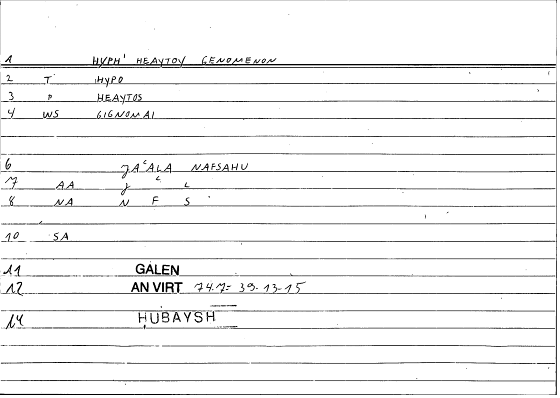 1 HYPH' HEAYTOY GENOMENON
2 T HYPO
3 P HEAYTOS
4 WS GIGNOMAI
6 ǧAʿALA NAFSAHU
7 AA ǧ ʿ L
8 NA N F S
10 SA
11 GALEN
12 AN VIRT 74.7= 39-13-15
14 HUBAYSH